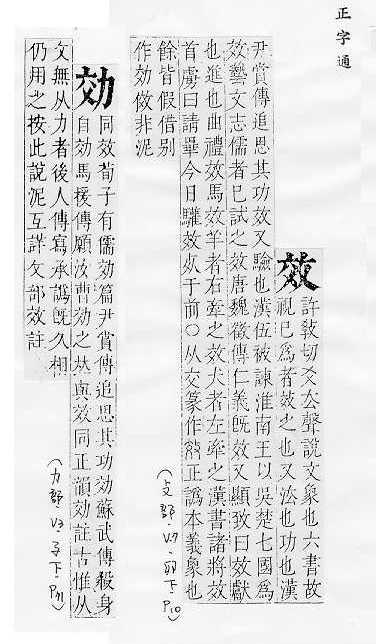 正字通
效
許敎切爻去聲說文象也六書故
視已爲者效之也又法也功也漢
尹賞傳追思其功效又驗也漢伍被諫淮南王以吳楚七國爲
效藝文志儒者已試之效唐魏徵傳仁義旣效又顯致曰效獻
也進也曲禮效馬效羊者右牽之效犬者左牽之漢書諸將效
首虜曰請畢今日驩效死于前○从交篆作 正譌本義象也
餘皆假借別
作効倣非泥
(攴部・V.7・卯下・P10)
効
同效荀子有儒効篇尹賞傳追思其功効蘇武傳殺身
自効馬援傳願汝曹効之𠀤與效同正韻効註古惟从
攵無从力者後人傳寫承譌旣久相
仍用之按此說泥互詳攵部效註
(力部・V.3・子下・P71)